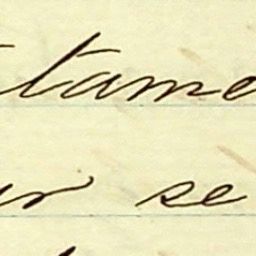 tame
ur se